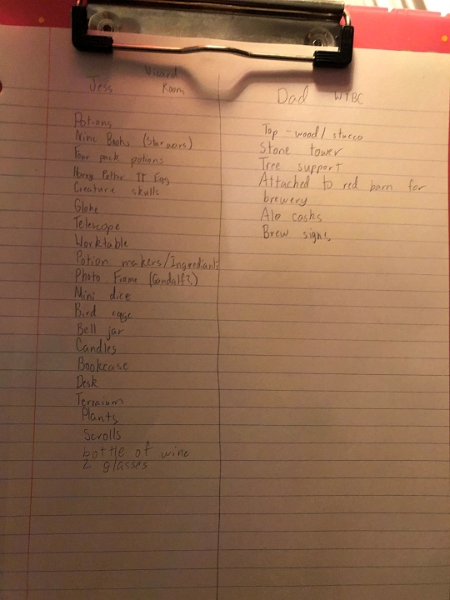 Jess Wizard Room
Potions
Mini Books (Star wars)
Four pack potions
Harry Potter Egg
Creature skulls
Globe
Telescope
Worktable
Potion makers/Ingredients
Photo Frame (Gandalf?)
Mini dice
Bird cage
Bell jar
Candles
Bookcase
Desk
Terrarium
Plants
Scrolls
bottle of wine
2 glasses
Dad WYBC
Top - wood/stucco
Stone tower
Tree support
Attached to red barn for
brewery
Ale casks
Brew signs